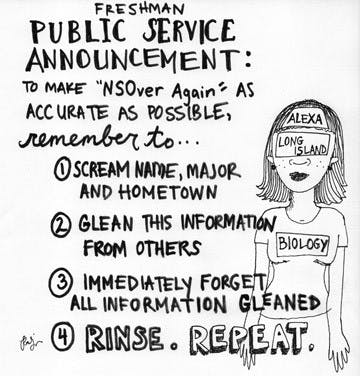 FRESHMAN
PUBLIC SERVICE
ANNOUNCEMENT:
TO MAKE "NSOver Again" AS
ACCURATE AS POSSIBLE,
remember to...
① SCREAM NAME, MAJOR
AND HOMETOWN
② GLEAN THIS INFORMATION
FROM OTHERS
③ IMMEDIATELY FORGET
ALL INFORMATION GLEANED
④ RINSE. REPEAT.
ALEXA
LONG
ISLAND
BIOLOGY